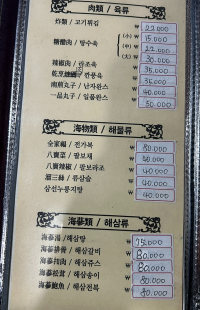 肉類 / 육류
炸類 / 고기튀김 ₩ 22.000
糖醋肉 / 탕수육 (小) ₩ 15.000
(中) ₩ 22.000
(大) ₩ 30.000
辣椒肉 / 라조육 ₩ 35.000
乾烹 / 깐풍육 ₩ 35.000
南煎丸子 / 난자완스 ₩ 40.000
一品丸子 / 일품완스 ₩ 50.000
海物類 / 해물류
全家福 / 전가복 ₩ 80.000
八寶菜 / 팔보채 ₩ 40.000
八寶辣椒 / 팔보라조 ₩ 40.000
溜三絲 / 류삼슬 ₩ 40.000
삼선누룽지탕 ₩ 40.000
海蔘類 / 해삼류
海蔘湯 / 해삼탕 ₩ 75.000
海蔘排骨 / 해삼갈비 ₩ 80.000
海蔘肘肉 / 해삼쥬스 ₩ 80.000
海蔘松茸 / 해삼송이 ₩ 80.000
海蔘鮑魚 / 해삼전복 ₩ 80.000